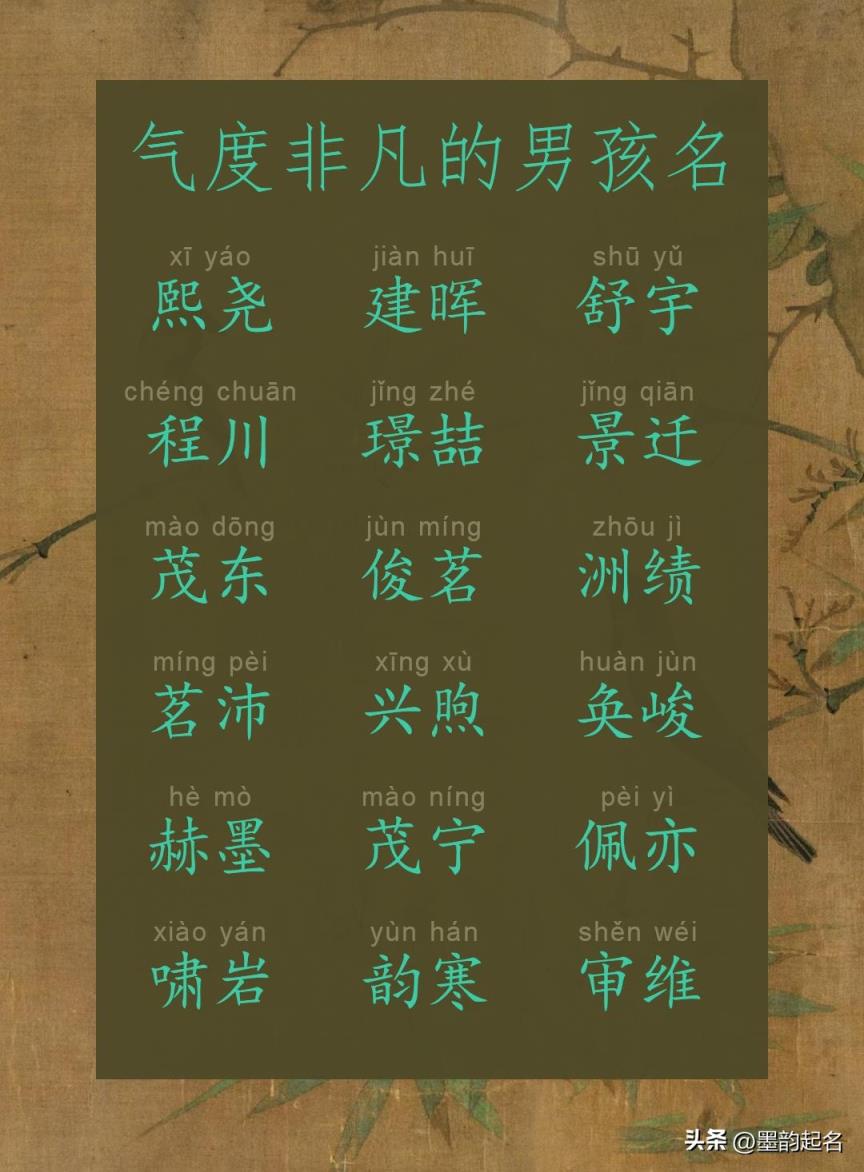 气度非凡的男孩名
xī yáo jiàn huī shū yǔ
熙尧 建晖 舒宇
chéng chuān jǐng zhé jǐng qiān
程川 璟喆 景迁
mào dōng jùn míng zhōu jì
茂东 俊茗 洲绩
míng pèi xīng xù huàn jùn
茗沛 兴煦 奂峻
hè mò mào níng pèi yì
赫墨 茂宁 佩亦
xiào yán yùn hán shěn wéi
啸岩 韵寒 审维
头条 @墨韵起名